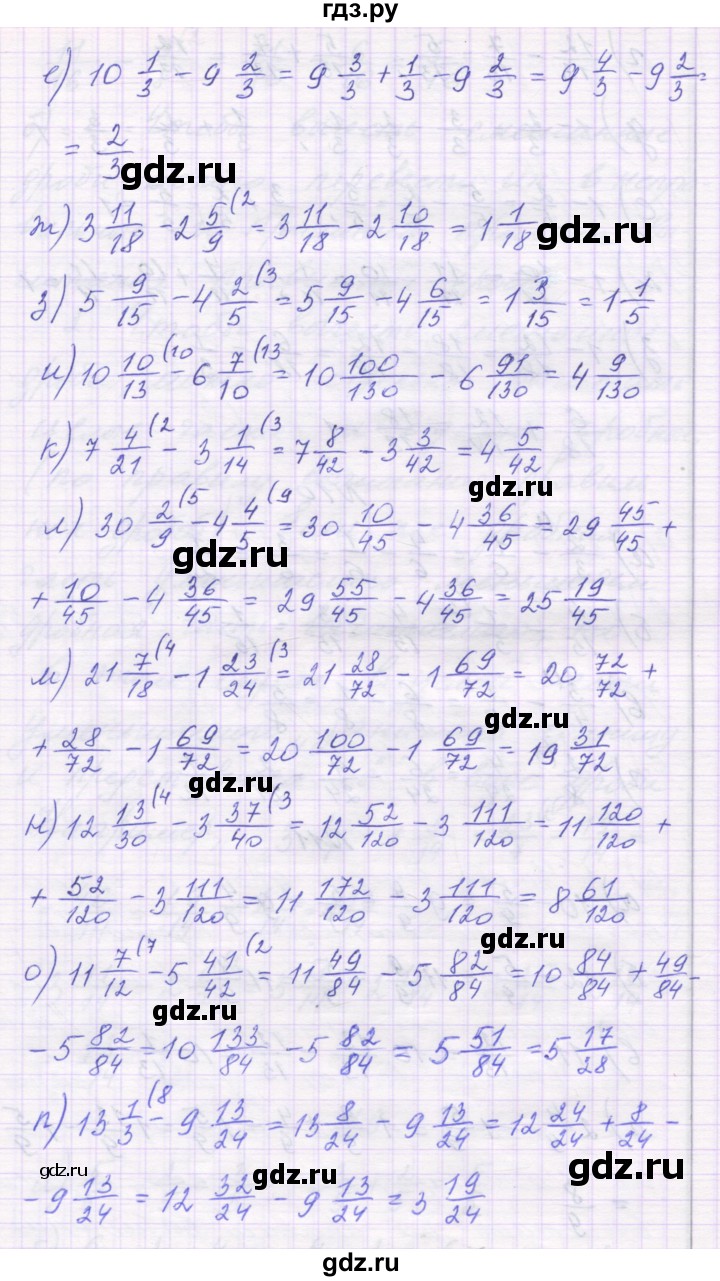 гдз.ру
е) 10 1/3 - 9 2/3 = 9 3/3 + 1/3 - 9 2/3 = 9 4/3 - 9 2/3 =
= 2/3
gdz.ru
ж) 3 11/18 - 2 5/9 (2 = 3 11/18 - 2 10/18 = 1 1/18
gdz.ru
з) 5 9/15 - 4 2/5 (3 = 5 9/15 - 4 6/15 = 1 3/15 = 1 1/5
и) 10 10/13 (10 - 6 7/10 (13 = 10 100/130 - 6 91/130 = 4 9/130
к) 7 4/21 (2 - 3 1/14 (3 = 7 8/42 - 3 3/42 = 4 5/42
gdz.ru
л) 30 2/9 (5 - 4 4/5 (9 = 30 10/45 - 4 36/45 = 29 45/45 +
gdz.ru
+ 10/45 - 4 36/45 = 29 55/45 - 4 36/45 = 25 19/45
м) 21 7/18 (4 - 1 23/24 (3 = 21 28/72 - 1 69/72 = 20 72/72 +
gdz.ru
+ 28/72 - 1 69/72 = 20 100/72 - 1 69/72 = 19 31/72
gdz.ru
н) 12 13/30 (4 - 3 37/40 (3 = 12 52/120 - 3 111/120 = 11 120/120 +
+ 52/120 - 3 111/120 = 11 172/120 - 3 111/120 = 8 61/120
gdz.ru
о) 11 7/12 (7 - 5 41/42 (2 = 11 49/84 - 5 82/84 = 10 84/84 + 49/84 -
gdz.ru
- 5 82/84 = 10 133/84 - 5 82/84 = 5 51/84 = 5 17/28
п) 13 1/3 (8 - 9 13/24 = 13 8/24 - 9 13/24 = 12 24/24 + 8/24 -
gdz.ru gdz.ru gdz.ru
- 9 13/24 = 12 32/24 - 9 13/24 = 3 19/24
gdz.ru